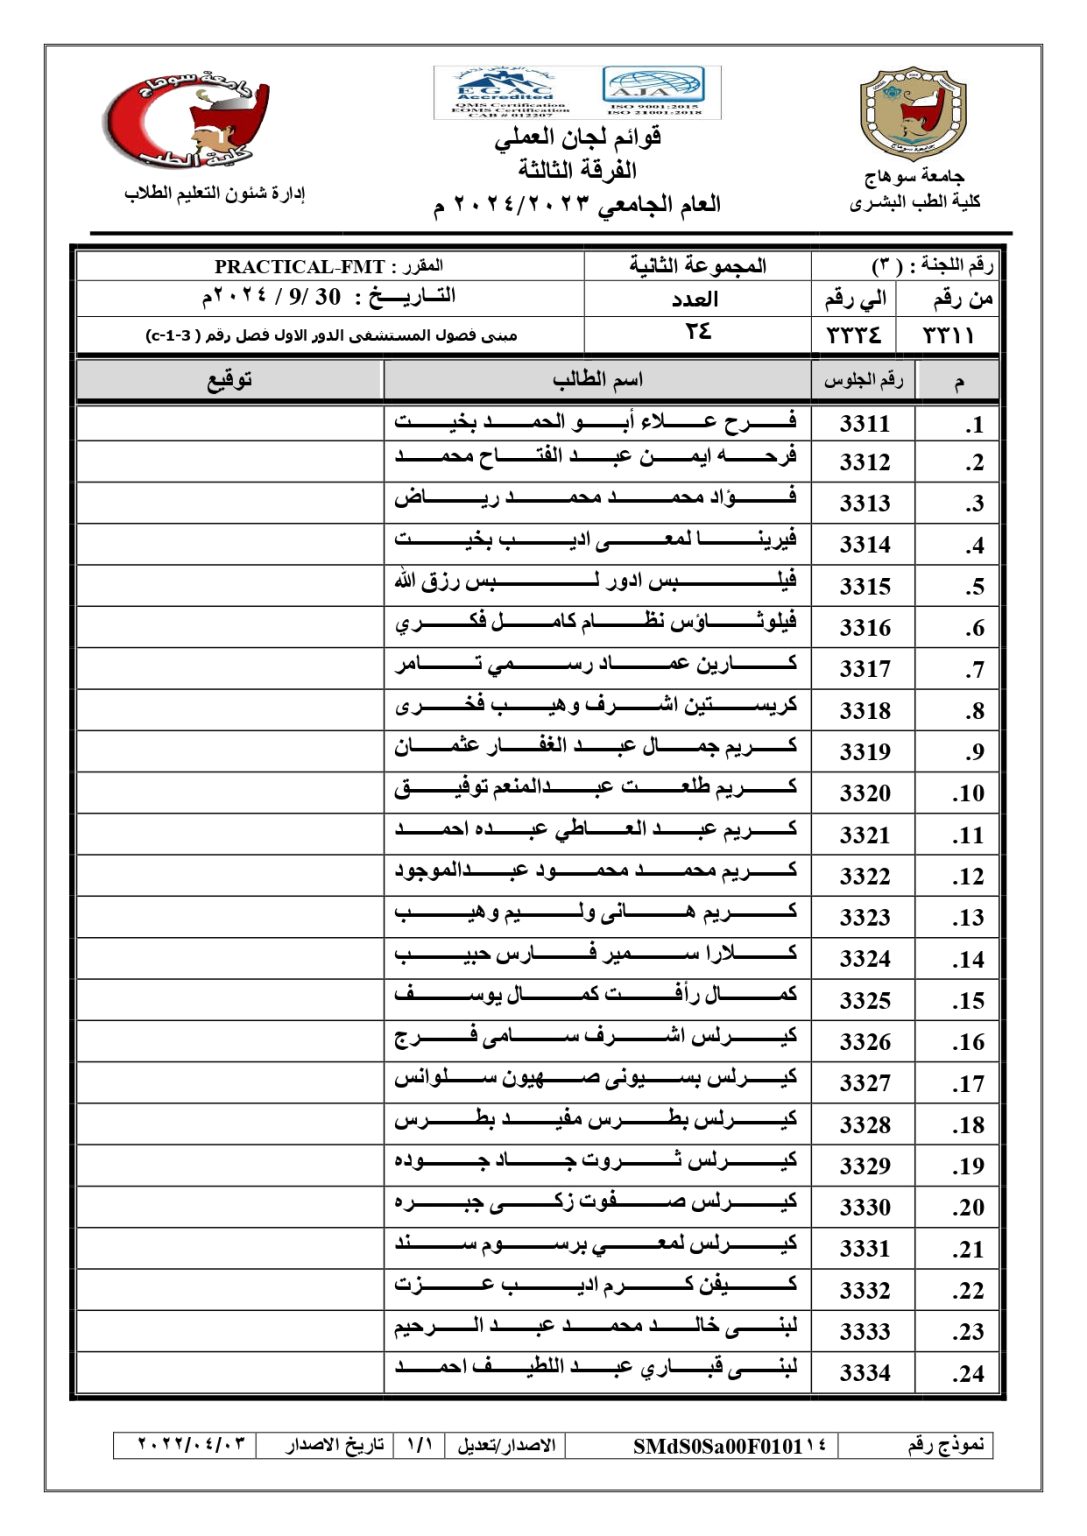 جامعة سوهاج
كلية الطب
EGAC
Accredited
QMS Certification
EOMS Certification
CAB # 012207
AJA
ISO 9001:2015
ISO 21001:2018
جامعة سوهاج
جامعة سوهاج
كلية الطب البشرى
قوائم لجان العملي
الفرقة الثالثة
العام الجامعي ٢٠٢٤/٢٠٢٣ م
إدارة شئون التعليم الطلاب
رقم اللجنة : ( ٣) المجموعة الثانية المقرر : PRACTICAL-FMT
من رقم الي رقم العدد التاريخ : 30 /9 / ٢٠٢٤م
٣٣١١ ٣٣٣٤ ٢٤ مبنى فصول المستشفى الدور الاول فصل رقم ( c-1-3)
م رقم الجلوس اسم الطالب توقيع
.1 3311 فرح علاء أبو الحمد بخيت
.2 3312 فرحه ايمن عبد الفتاح محمد
.3 3313 فؤاد محمد محمد رياض
.4 3314 فيرينا لمعى اديب بخيت
.5 3315 فيلبس ادور لبس رزق الله
.6 3316 فيلوثاؤس نظام كامل فكري
.7 3317 كارين عماد رسمي تامر
.8 3318 كريستين اشرف وهيب فخرى
.9 3319 كريم جمال عبد الغفار عثمان
.10 3320 كريم طلعت عبدالمنعم توفيق
.11 3321 كريم عبد العاطي عبده احمد
.12 3322 كريم محمد محمود عبدالموجود
.13 3323 كريم هانى وليم وهيب
.14 3324 كلارا سمير فارس حبيب
.15 3325 كمال رأفت كمال يوسف
.16 3326 كيرلس اشرف سامى فرج
.17 3327 كيرلس بسيونى صهيون سلوانس
.18 3328 كيرلس بطرس مفيد بطرس
.19 3329 كيرلس ثروت جاد جوده
.20 3330 كيرلس صفوت زكى جبره
.21 3331 كيرلس لمعي برسوم سند
.22 3332 كيفن كرم اديب عزت
.23 3333 لبنى خالد محمد عبد الرحيم
.24 3334 لبنى قباري عبد اللطيف احمد
نموذج رقم SMdS0Sa00F0101١٤ الاصدار/تعديل ١/١ تاريخ الاصدار ٢٠٢٢/٠٤/٠٣